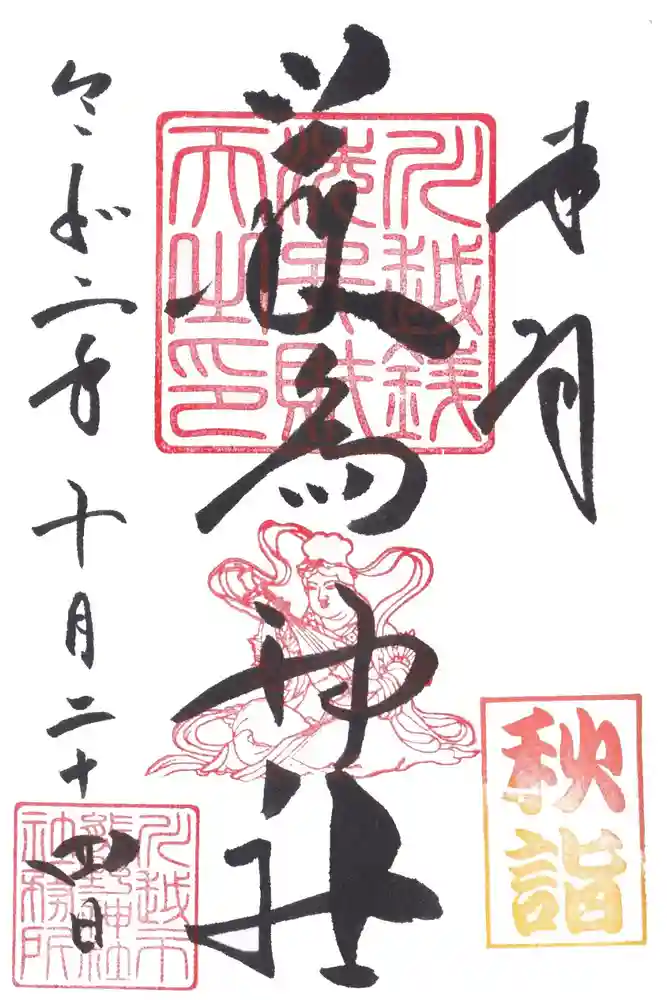 奉拝
川越銭
洗弁財
天之印
厳島神社
秋詣
令和二年十月二十四日
川越市
熊野神社
社務所